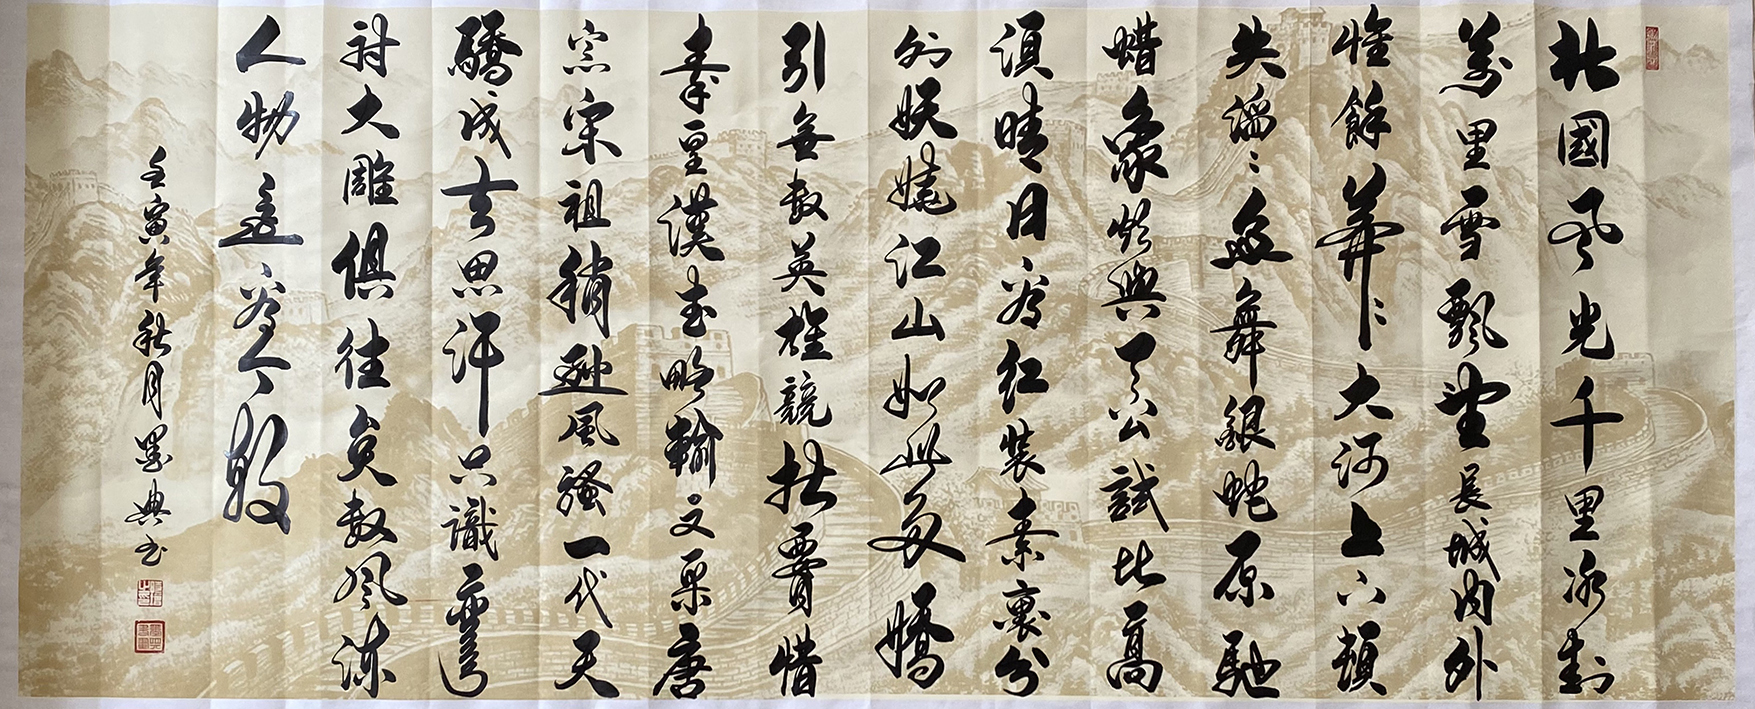 北國風光千里冰封
萬里雪飄望長城内外
惟餘莽〻大河上下頓
失滔〻舞銀蛇原馳
蠟象欲與天公試比高
須晴日看紅裝素裹分
外妖嬈江山如此多嬌
引無數英雄競折腰惜
秦皇漢武略輸文采唐
宗宋祖稍遜風騷一代天
驕成吉思汗只識彎弓
射大雕俱往矣數風流
人物還看今朝
壬寅年秋月墨典書